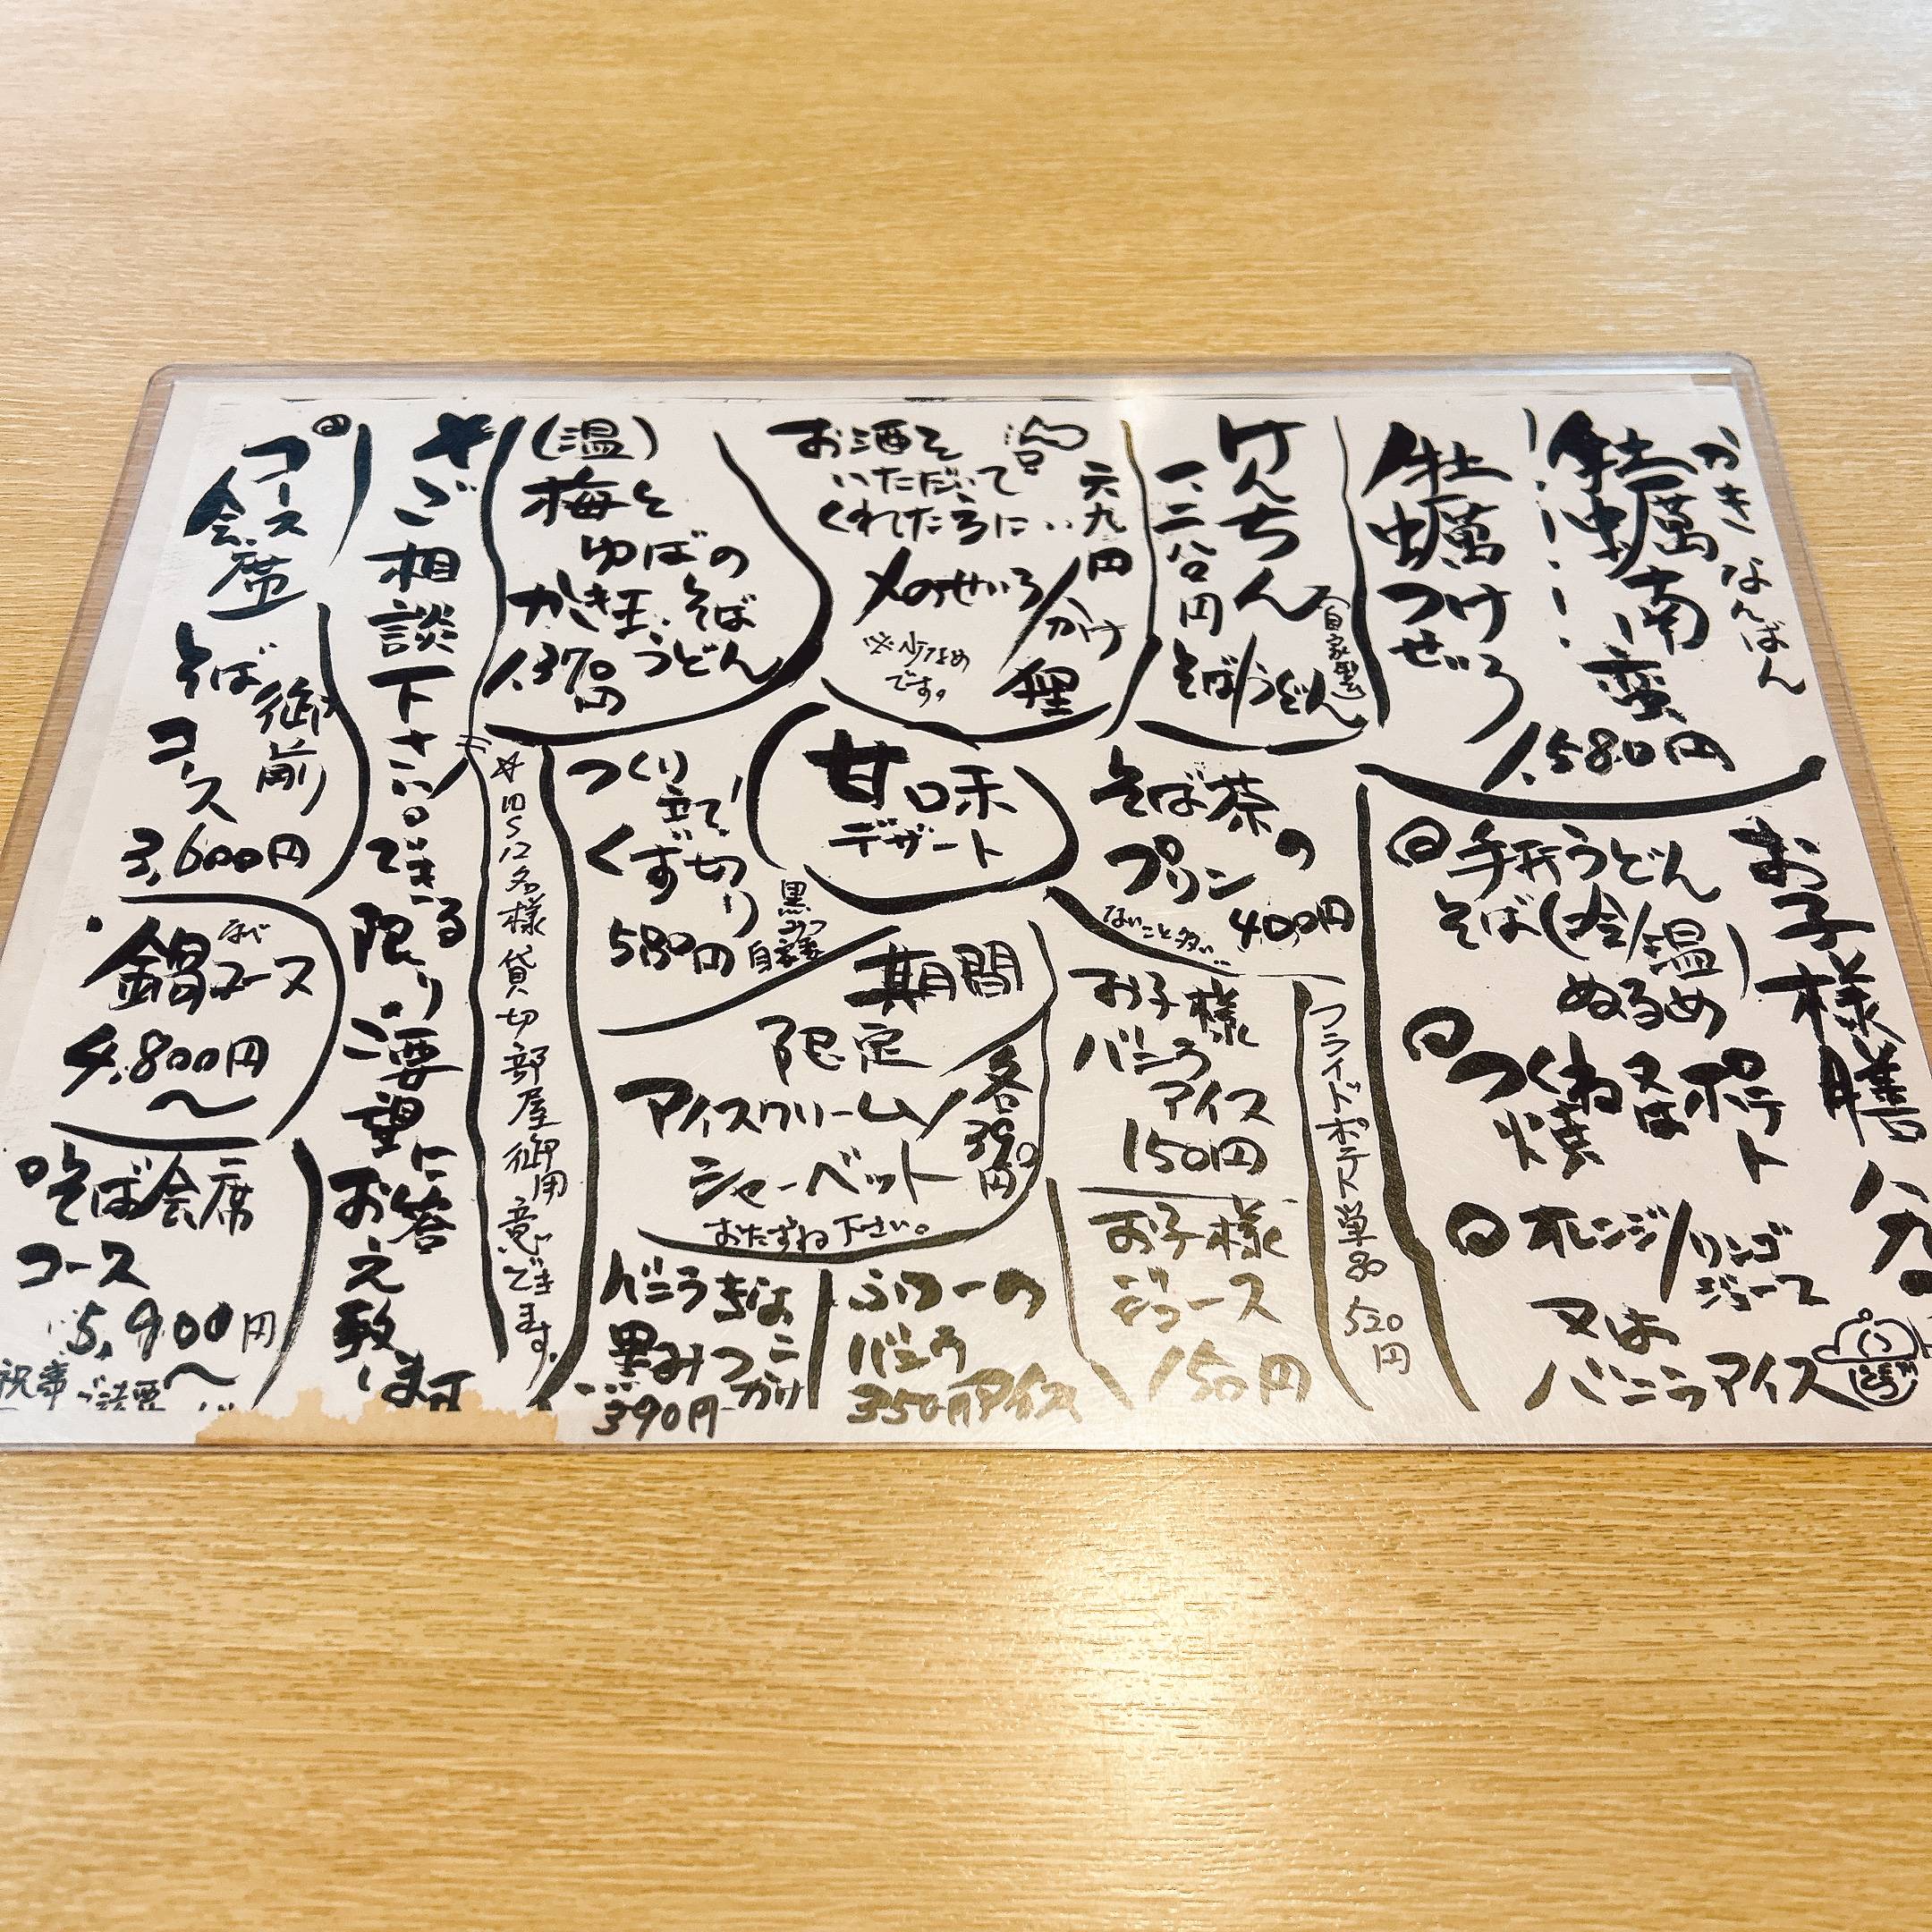 かきなんばん
牡蠣南蛮
牡蠣つけ
せいろ
1,580円
けんちん
一、二八〇円
そば/うどん
お酒を
いただいて
くれた方に…
〆のせいろ/かけ
狸
六九〇円
※少なめ
です。
(温)
梅と
ゆばの
かき玉、そば
うどん
1,370円
お子様膳
手形うどん
そば(冷/温)
ぬるめ
つくね又はポテト
焼
オレンジ/リンゴ
ジュース
又は
バニラアイス
フライドポテト単品520円
そば茶の
プリン
400円
ないこと多い…
お子様
バニラ
アイス
150円
お子様
ジュース
150円
甘味
デザート
つくり
立て!
くず切り
580円
黒みつ
自家製
期間
限定
アイスクリーム/
シャーベット
各390円
おたずね下さい。
ふつーの
バニラ
350円アイス
バニラきなこ
黒みつかけ
390円
☆10~12名様貸切部屋御用意できます。
☆ご相談下さい。できる
限りご要望に
お答え致します
コース
会席
そば御前
コース
3,600円
鍋コース
なべ
4,800円
~
そば会席
コース
5,900円
~